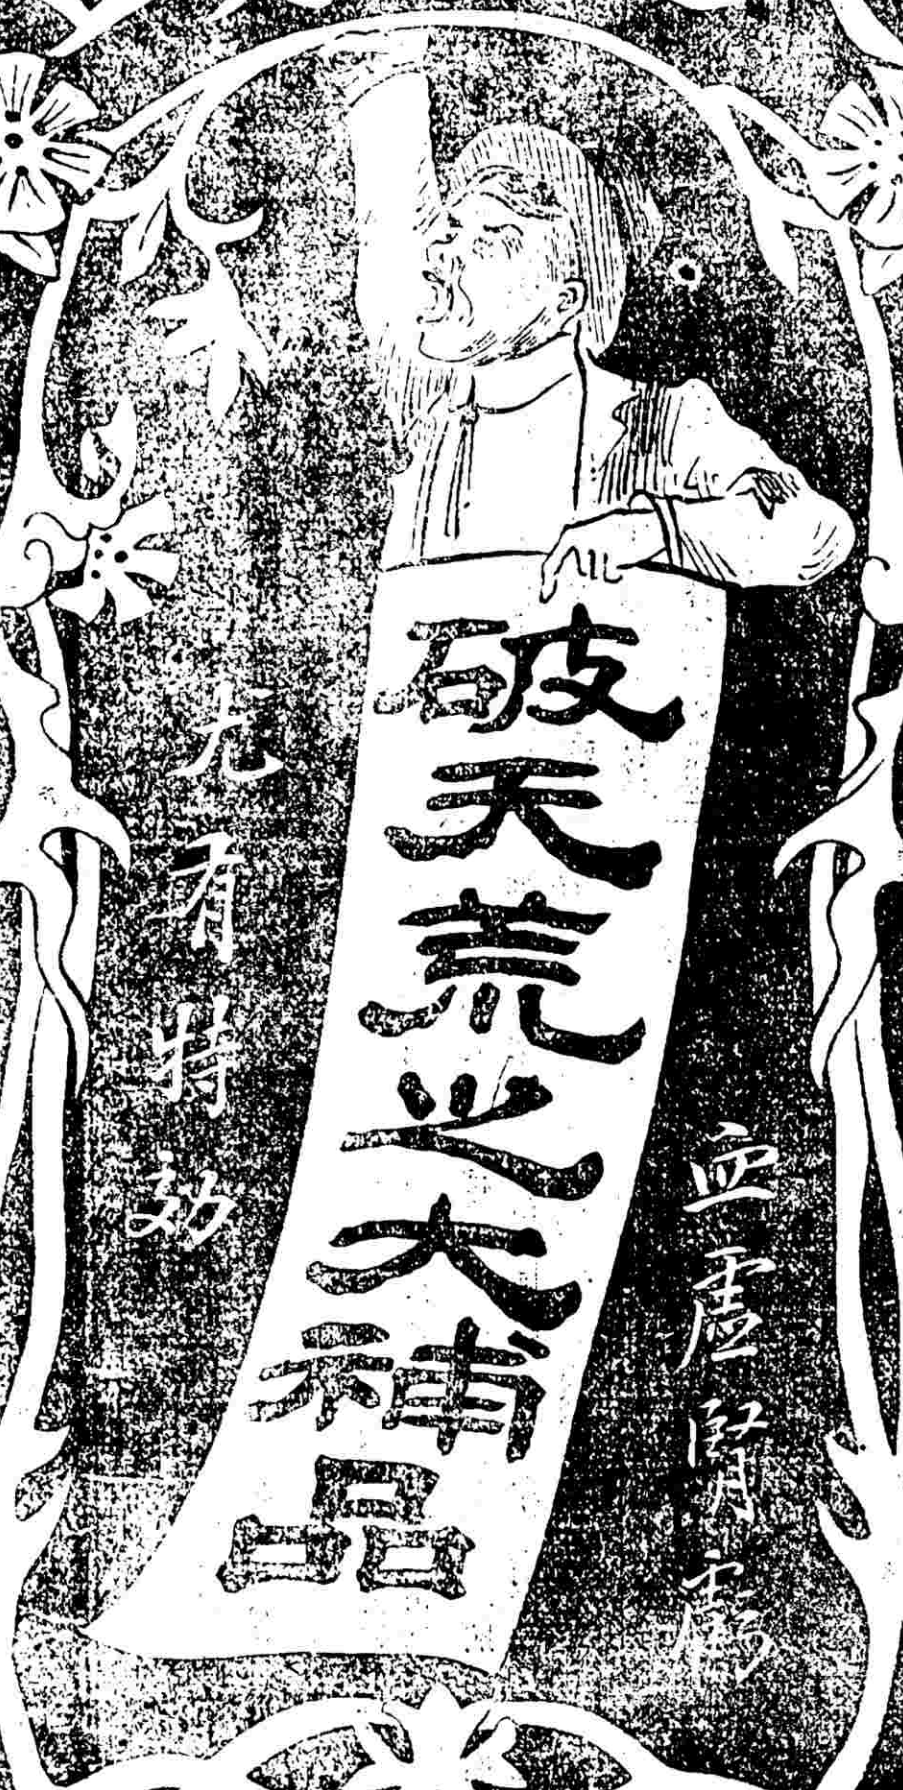 血虛腎虧
破天荒之大補品
尤有特効